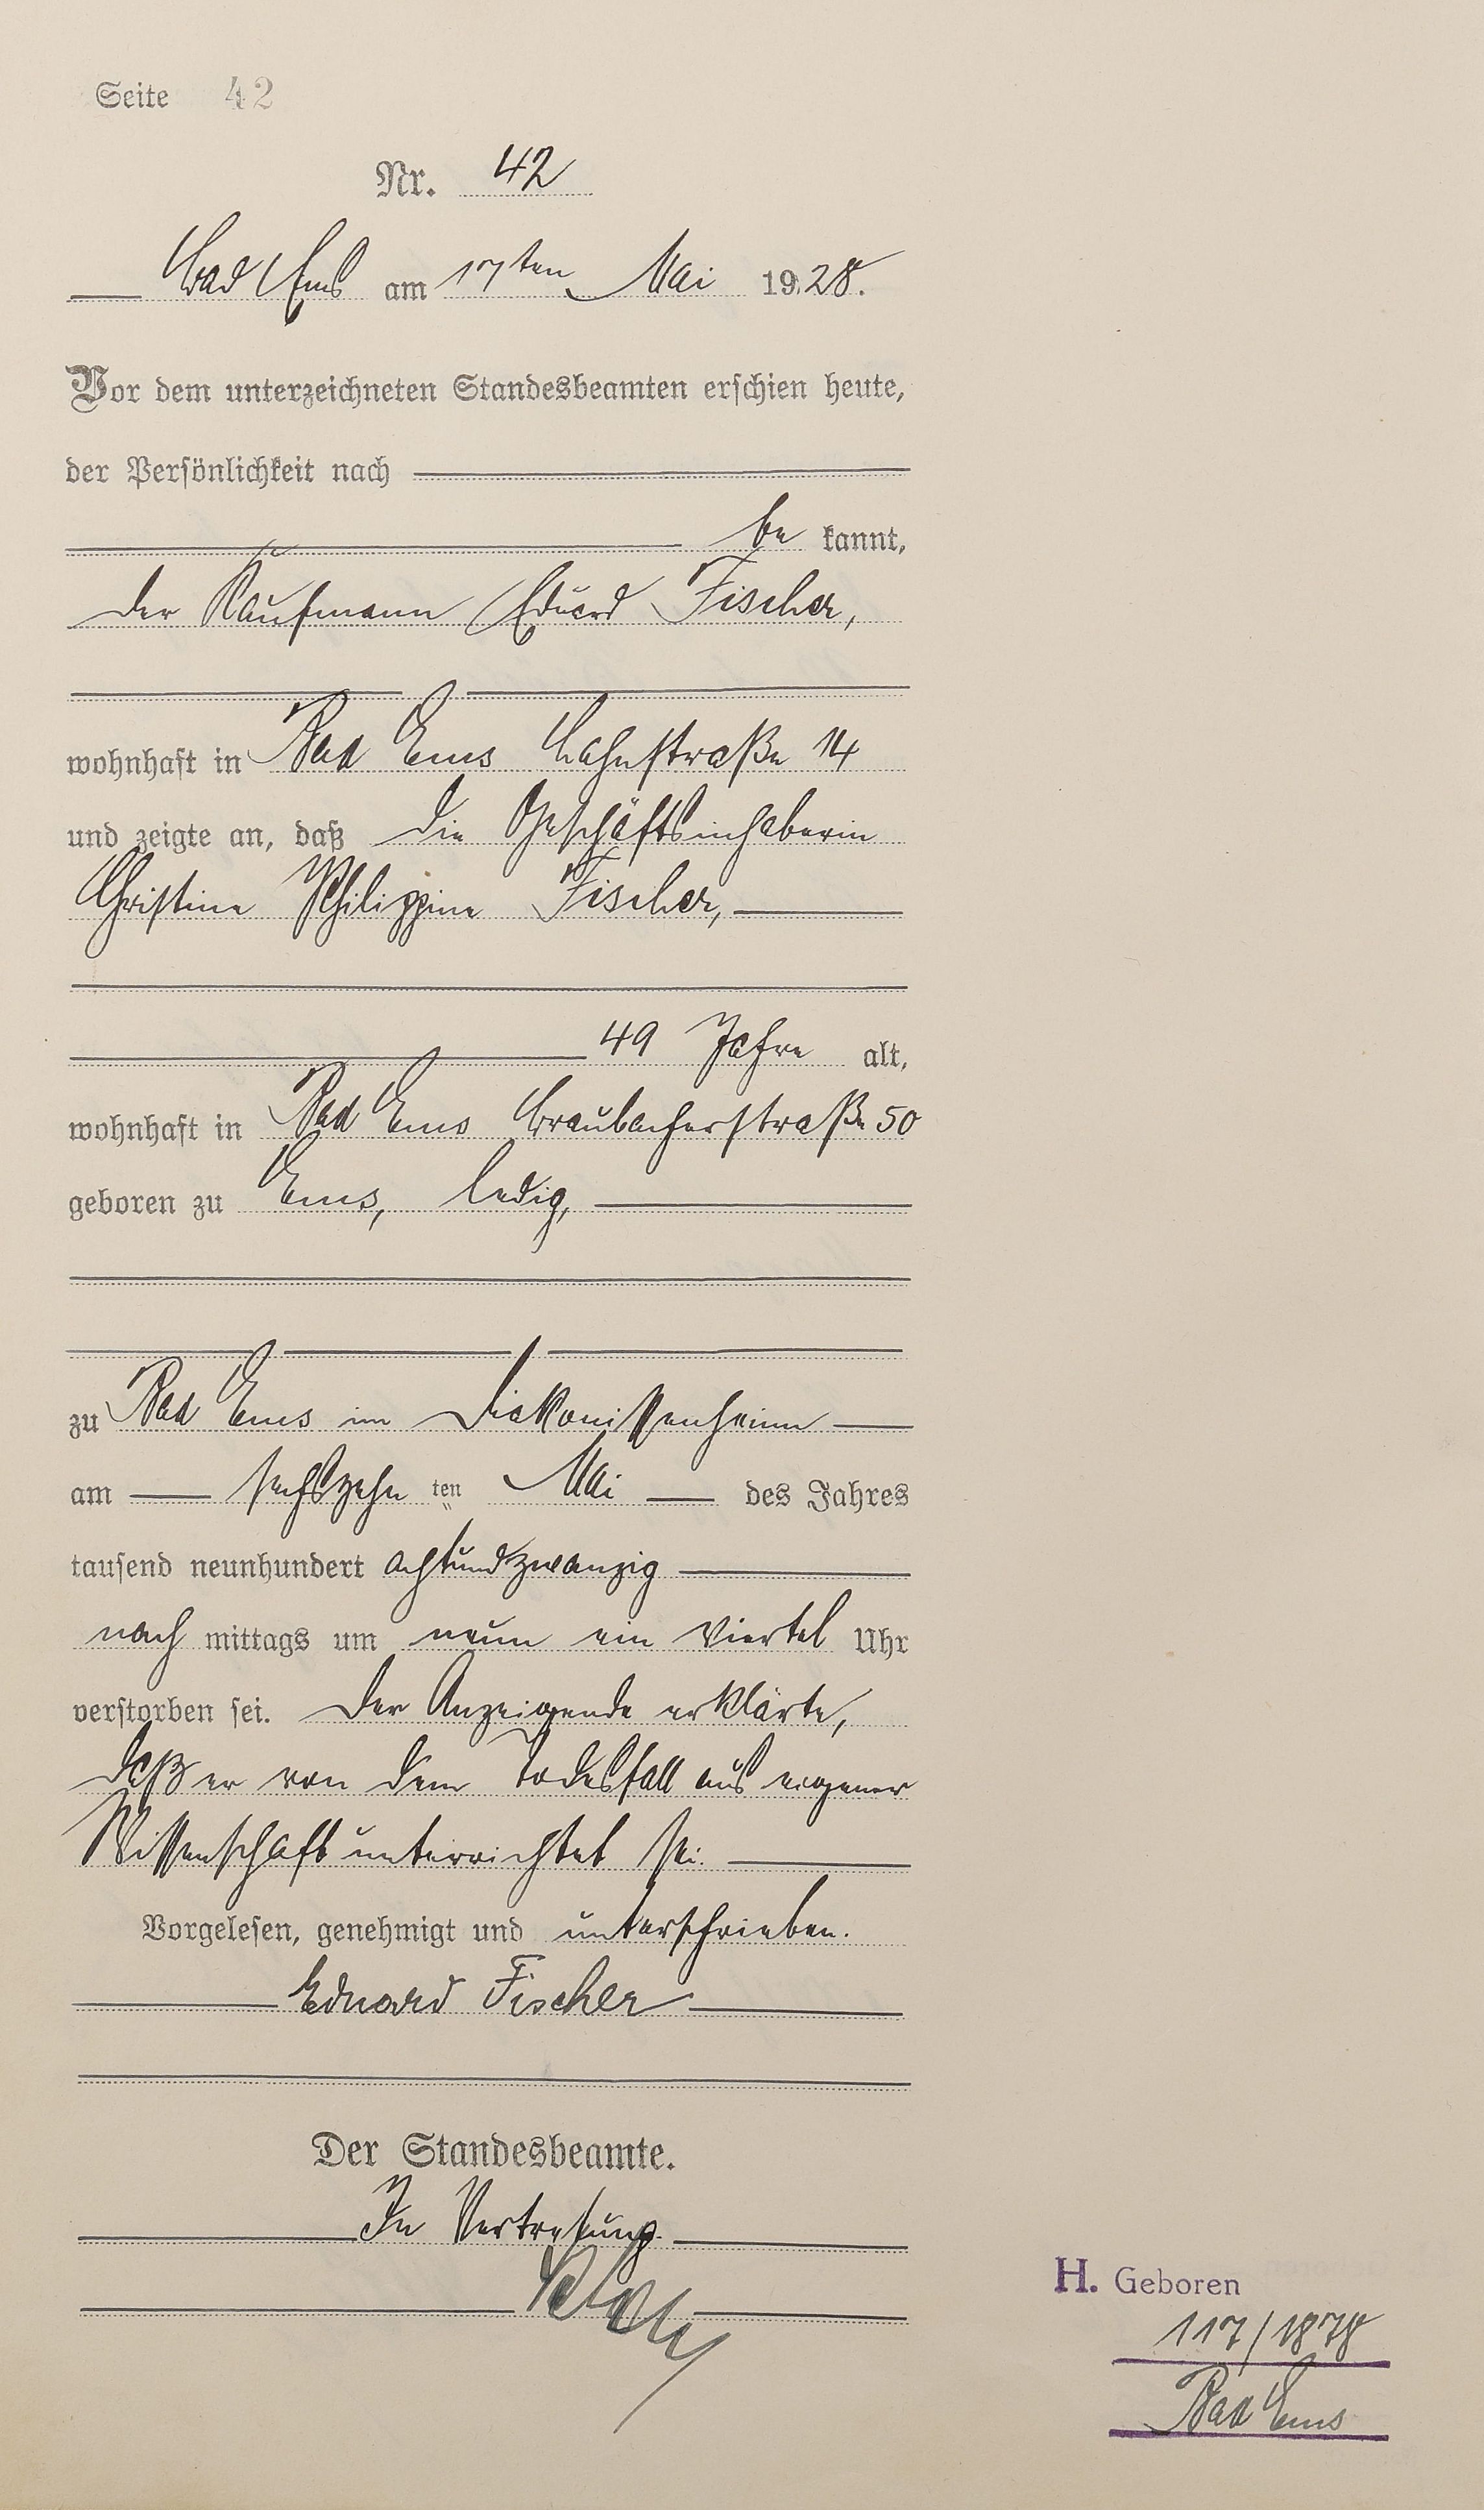 Seite 42
Nr. 42
Bad Ems am 17ten Mai 1928.
Vor dem unterzeichneten Standesbeamten erschien heute,
der Persönlichkeit nach
be kannt,
der Kaufmann Eduard Fischer,
wohnhaft in Bad Ems Lahnstraße 14
und zeigte an, daß die Geschäftsinhaberin
Christine Philippine Fischer,
49 Jahre alt,
wohnhaft in Bad Ems Braubacherstraße 50
geboren zu Ems, ledig,
zu Bad Ems im Diakonissenheim
am sechszehn ten Mai des Jahres
tausend neunhundert achtundzwanzig
nach mittags um neun ein Viertel Uhr
verstorben sei. Der Anzeigende erklärte,
daß er von dem Todesfall aus eigener
Wissenschaft unterrichtet sei.
Vorgelesen, genehmigt und unterschrieben.
Eduard Fischer
Der Standesbeamte.
In Vertretung
H. Geboren
117/1878
Bad Ems